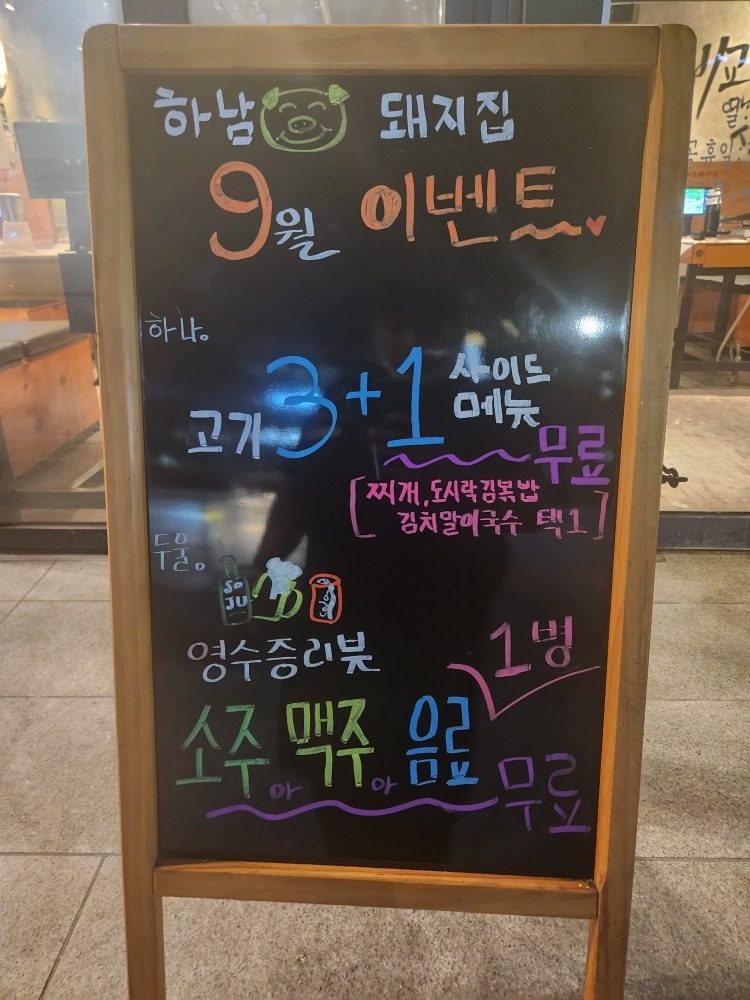 하남 돼지집
9월 이벤트
하나。
고기 3+1 사이드
메뉴
무료
[찌개, 도시락김볶밥
김치말이국수 택1]
두울。
SO
JU
영수증리뷰
1병
소주 맥주 음료
아 아 무료